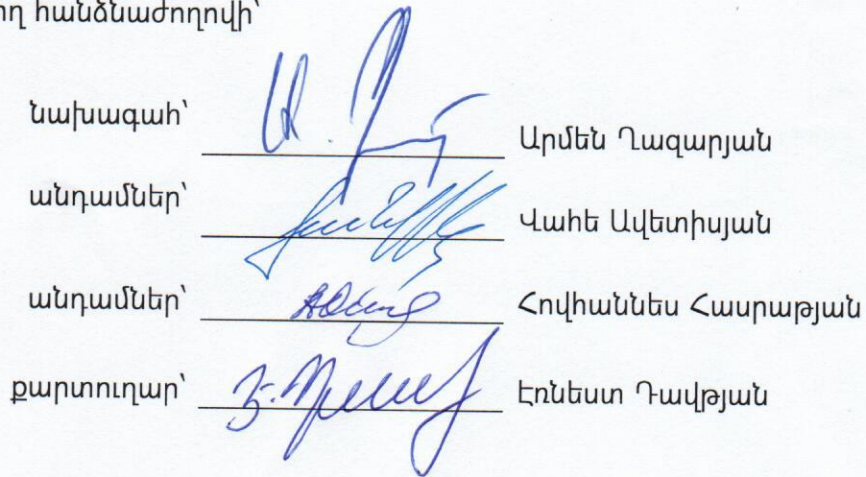 հանձնաժողովի՝
նախագահ՝ Արմեն Ղազարյան
անդամներ՝ Վահե Ավետիսյան
անդամներ՝ Հովհաննես Հասրաթյան
քարտուղար՝ Էռնեստ Դավթյան